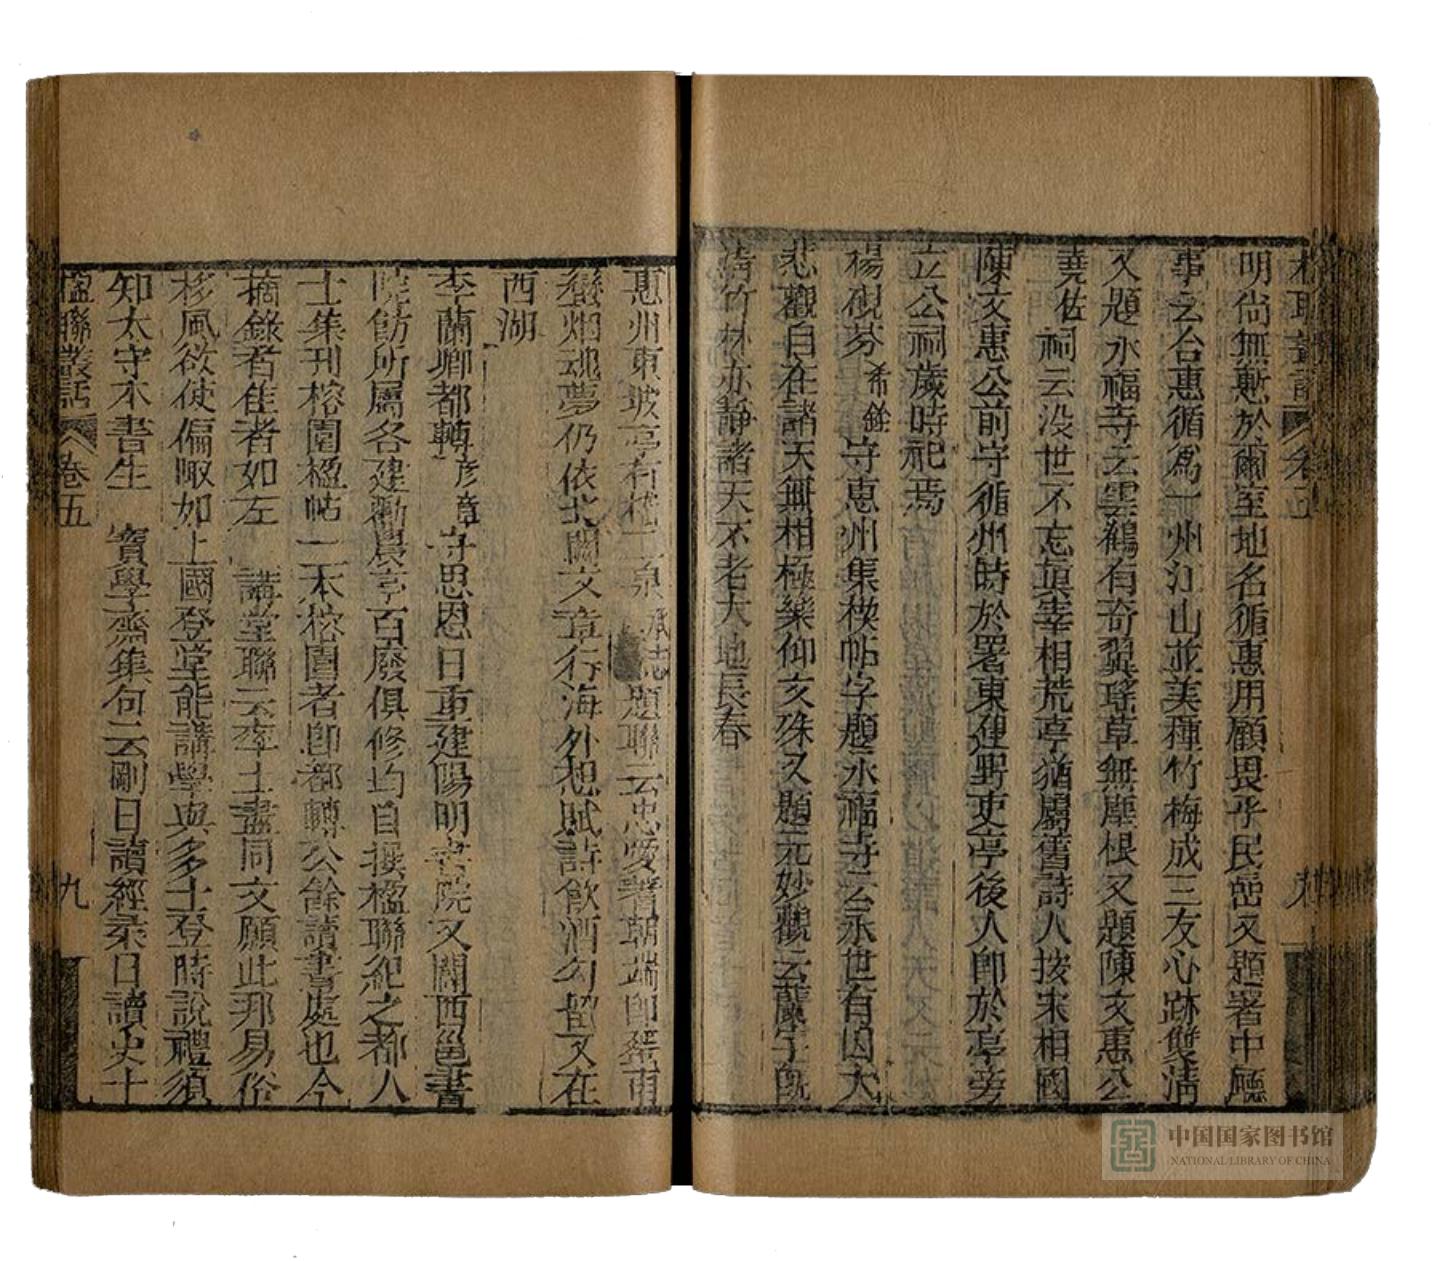 明尚無慙於爾室地名循惠用顧畏乎民嵒又題署中廳
事云台惠循爲一州江山並美種竹梅成三友心跡雙清
又題永福寺云雲鶴有奇翼瑤草無塵根又題陳文惠公
堯佐祠云没世不忘眞宰相荒亭猶屬舊詩人按宋相國
陳文惠公前守循州時於署東建野吏亭後人卽於亭旁
立公祠歲時祀焉
楊硯芬希銓守惠州集楔帖字題永福寺云永世有因大
悲觀自在諸天無相極樂仰文殊又題元妙觀云蘭宇旣
清竹林亦靜諸天不老大地長春
惠州東坡亭有題聯云忠愛著朝端卽蜑雨
蠻烟魂夢仍依北闕文章行海外想賦詩飮酒勾留又在
西湖
李蘭卿都轉彥章守思恩日重建陽明書院又闢西邕書
院飭所屬各建勸農亭百廢俱修均自撰楹聯紀之都人
士集刊榕園楹帖一本榕園者卽都轉公餘讀書處也今
摘錄者佳者如左 講堂聯云李土盡同文願此邦易俗
移風欲使偏陬如上國登堂能講學與多士登時說禮須
知太守本書生 寳學齋集句云剛日讀經柔日讀史十
楹聯叢話 卷五 九